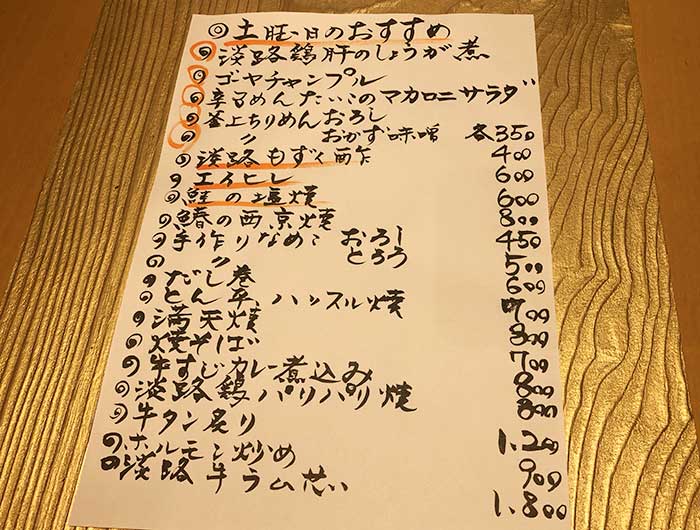 ◎土旺日のおすすめ
◎淡路鶏肝のしょうが煮
◎ゴーヤチャンプル
◎辛子めんたいこのマカロニサラダ
◎釜上ちりめんおろし
◎ 〃 おかず味噌 各350
◎淡路もずく酢 400
◎エイヒレ 600
◎鮭の塩焼 600
◎鰆の西京焼 800
◎手作りなめこ おろし 450
◎ 〃 とろろ 500
◎だし巻 600
◎とん平、ハッスル焼 700
◎満天焼 800
◎焼そば 700
◎牛すじカレー煮込み 800
◎淡路鶏パリパリ焼 800
◎牛タン炙り 1,200
◎ホルモン炒め 900
◎淡路牛ラム芯 1,800